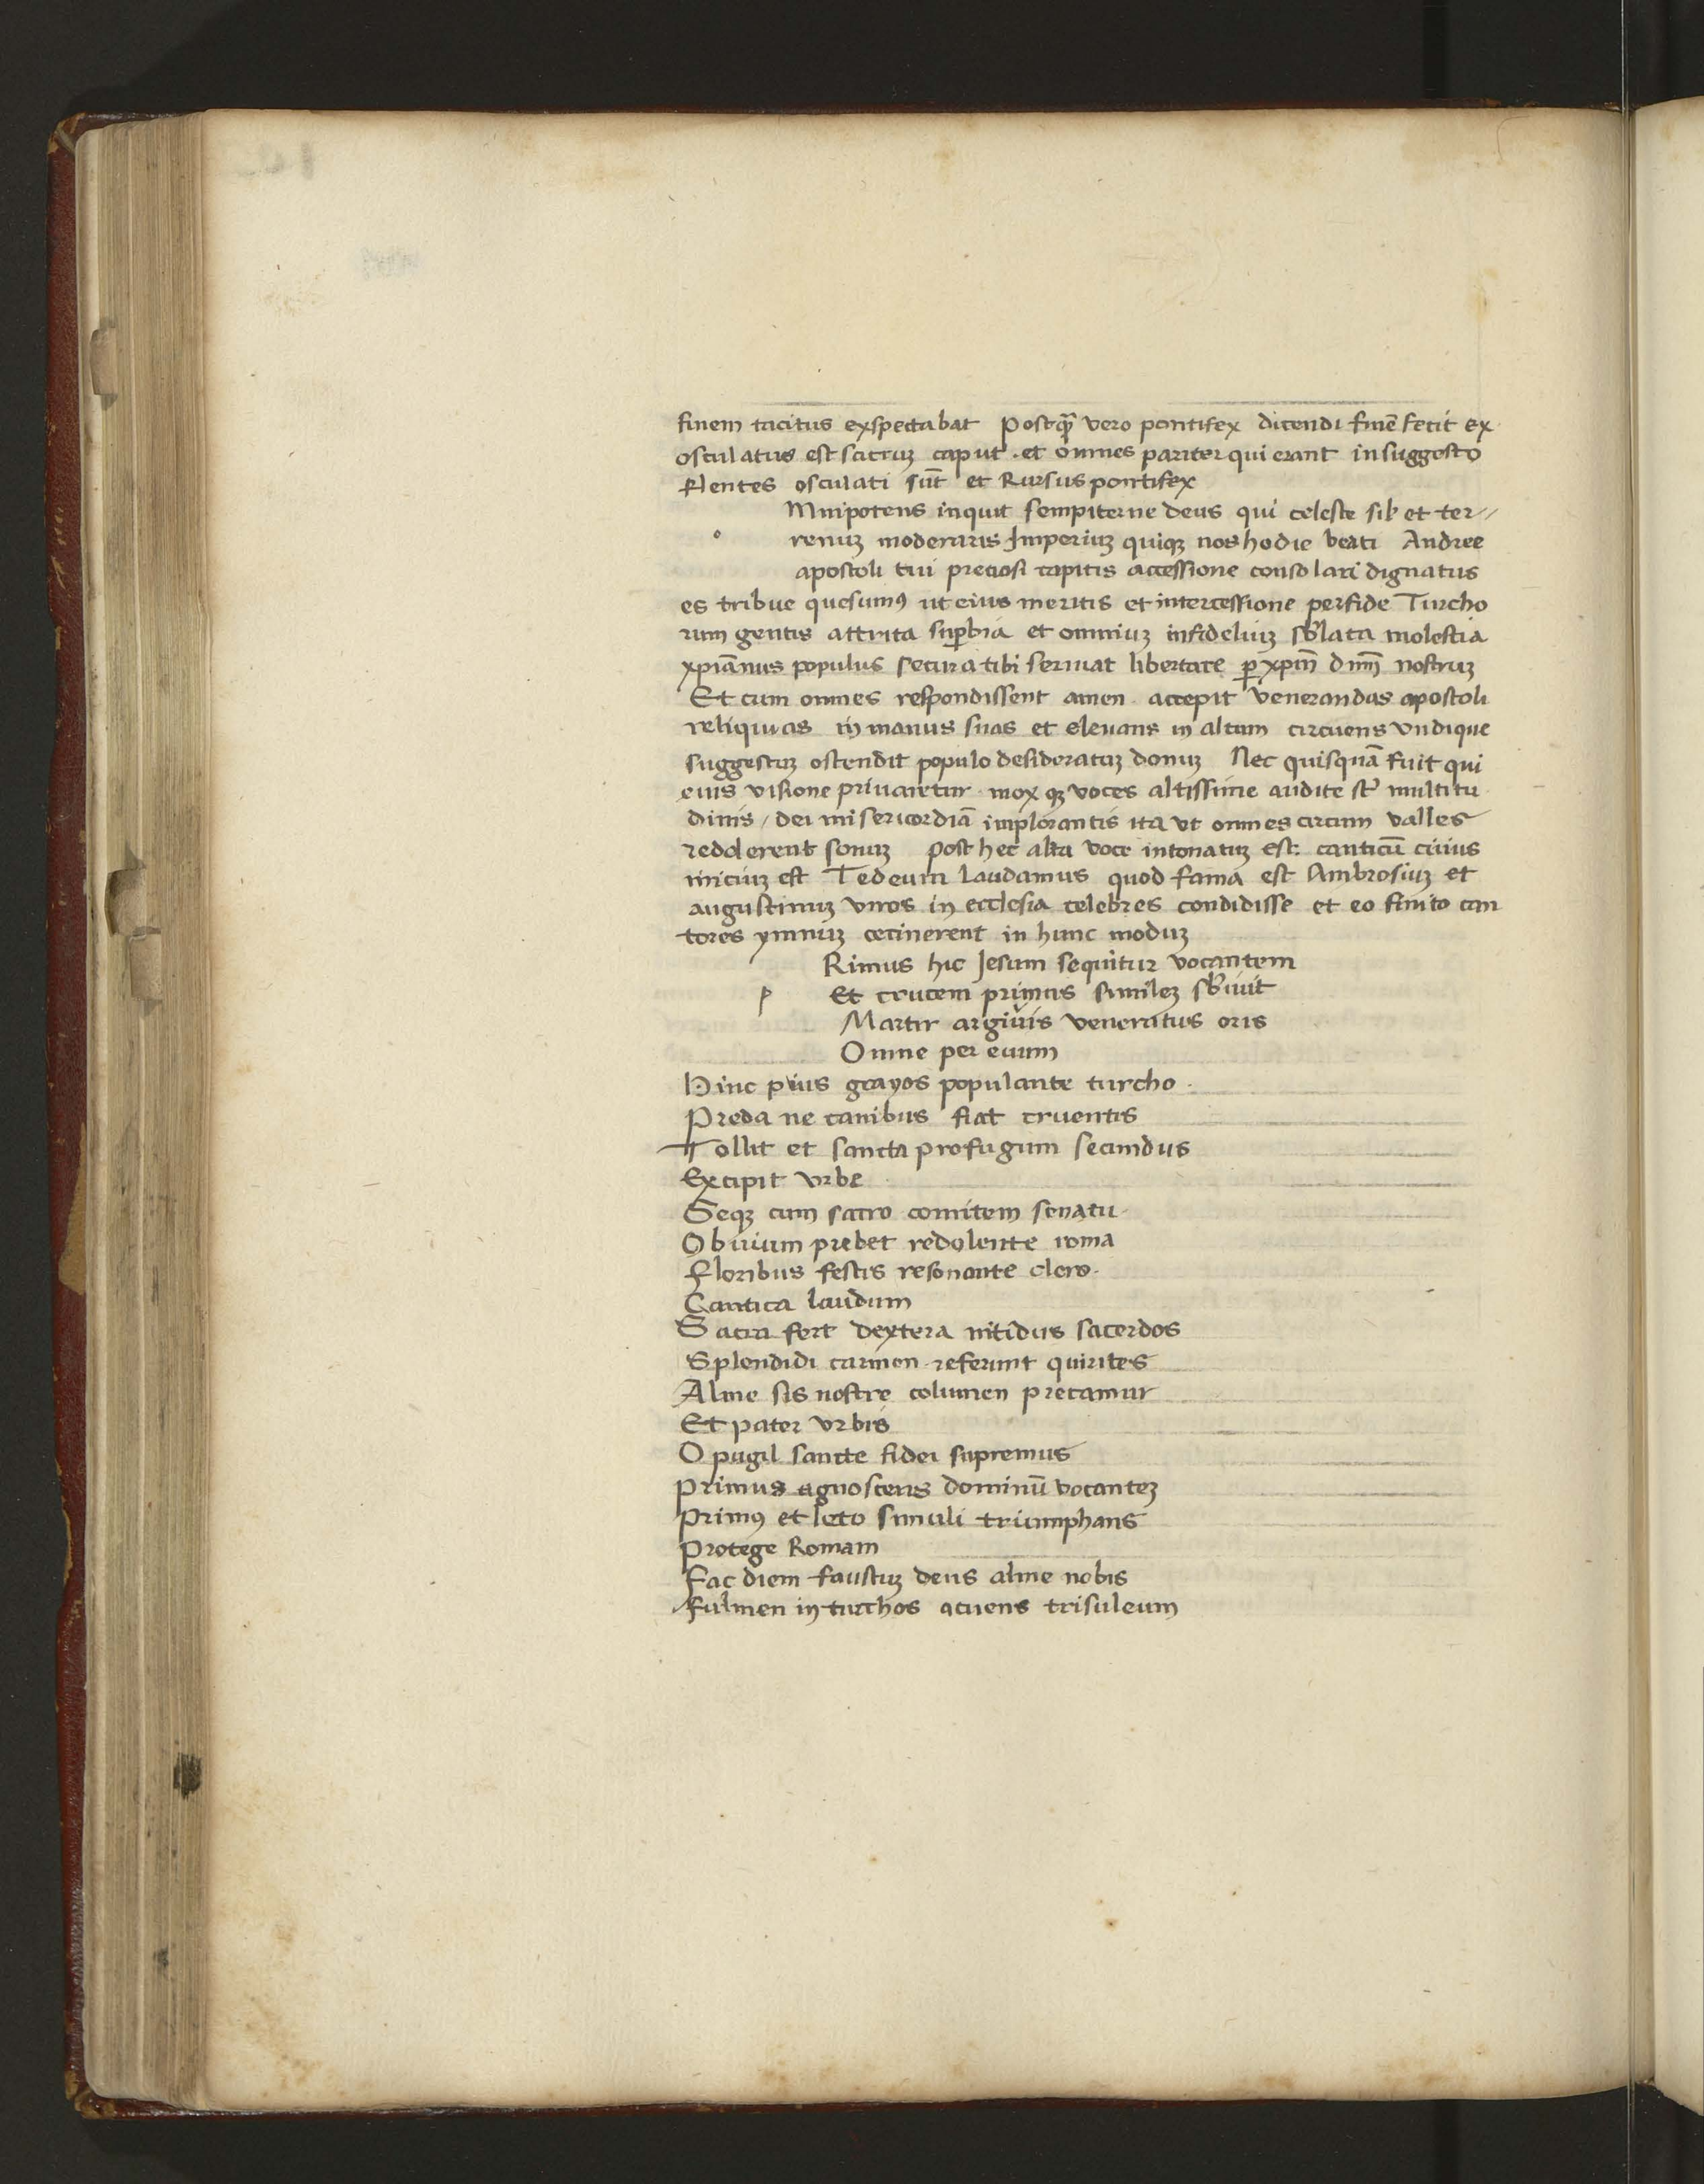 finem tacitus exspectabat Postqꝫ̃ vero pontifex dicendi finē fecit ex
osculatus est sacruꝫ caput · et omnes pariter qui erant in suggesto
flentes osculati sūt et Rursus pontifex
Mnipotens inquit sempiterne deus qui celeste sib et ter//
o renuꝫ moderaris Imperiuꝫ quiqꝫ nos hodie beati Andree
apostoli tui preciosi capitis accessione consolari dignatus
es tribue quesumꝰ ut eius meritis et intercessione perfide Turcho
rum gentis attrita suꝑbia et omniuꝫ infideliuꝫ sb̓lata molestia
xp̄iānus populus secura tibi seruiat libertate ꝑ xp̄m̄ dn̄m̄ nostruꝫ
Et cum omnes respondissent amen · accepit venerandas apostoli
reliquias in manus suas et eleuans in altum circuens vndique
suggestuꝫ ostendit populo desideratuꝫ donuꝫ Nec quisquā fuit qui
eius visione priuaretur · mox qꝫ voces altissime audite st̄ multitu
dinis / dei misericordiā implorantis ita vt omnes circum valles
redderent sonuꝫ post hec alta voce intonatuꝫ est: canticū cuius
iniciuꝫ est Tedeum laudamus quod fama est Ambrosiuꝫ et
augustinuꝫ viros in ecclesia celebres condidisse et eo finito can
tores ymnuꝫ cecinerent in hunc moduꝫ
Rimus hic Jesum sequitur vocantem
p Et crucem primus simileꝫ sb̓iuit
Martir argiuis veneratus oris
Omne per euum
Hinc pius grayos populante turcho ·
Preda ne canibus fiat cruentis
Tollit et sancta profugum secundus
Excipit vrbe
Seqꝫ cum sacro comitem senatu ·
Obuium prebet redolente roma
floribus festis resonante clero ·
Cantica laudum
Sacra fert dextera nitidus sacerdos
Splendidi carmen referunt quirites
Alme sis nostre columen precamur
Et pater vrbis
O pugil sancte fidei supremus
Primus agnoscens dominū vocanteꝫ
Primꝰ et leto simili triumphans
Protege Romam
Fac diem faustuꝫ deus alme nobis
fulmen in turchos acuens trisuleum